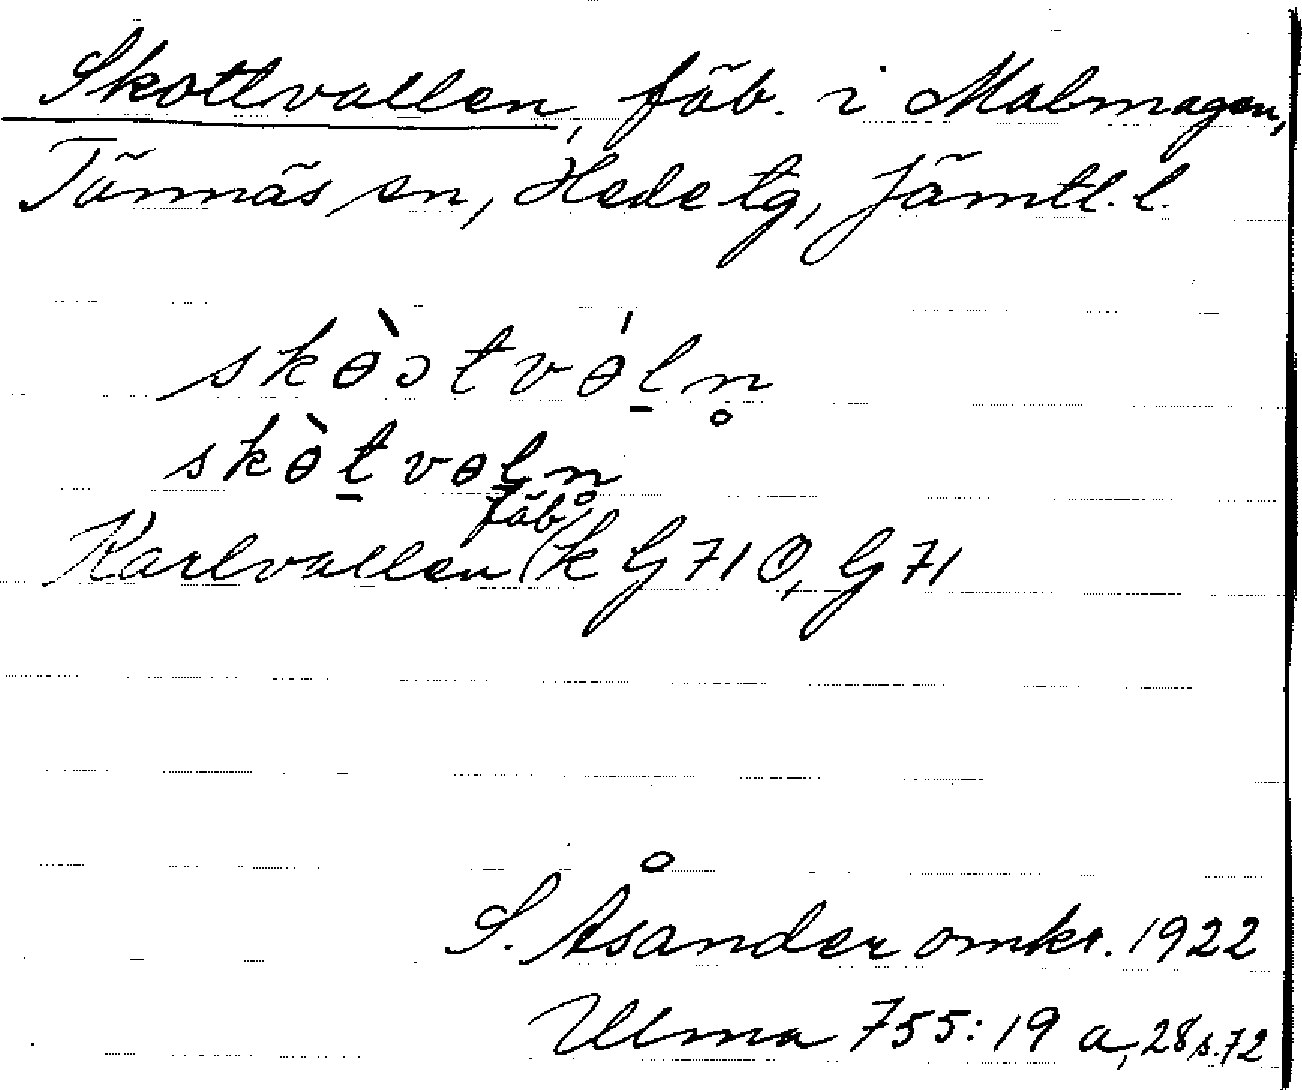 Skottvallen, fäb. i Malmagen,
Tännäs sn, Hede tg, Jämtl. l.
skɵ̀ɔtvɵ́l̲n̥
skɵ̀t̲vɵl̲n̥
fäb.
Karlvallen (k G 71 O, G 71
S. Åsander omkr. 1922
Ulma 755:19 a, 28 s. 72